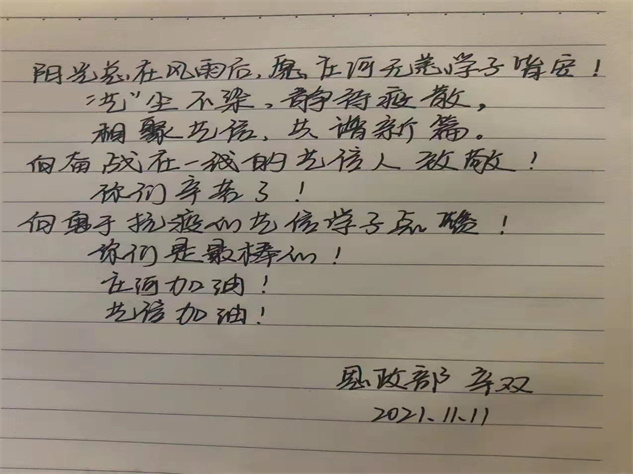 阳光总在风雨后,愿庄河无恙,学子皆安!
"艺"尘不染,静待疫散,
相聚艺信,共谱新篇。
向奋战在一线的艺信人致敬!
你们辛苦了!
向勇于抗疫的艺信学子点赞!
你们是最棒的!
庄河加油!
艺信加油!
思政部 辛双
2021.11.11